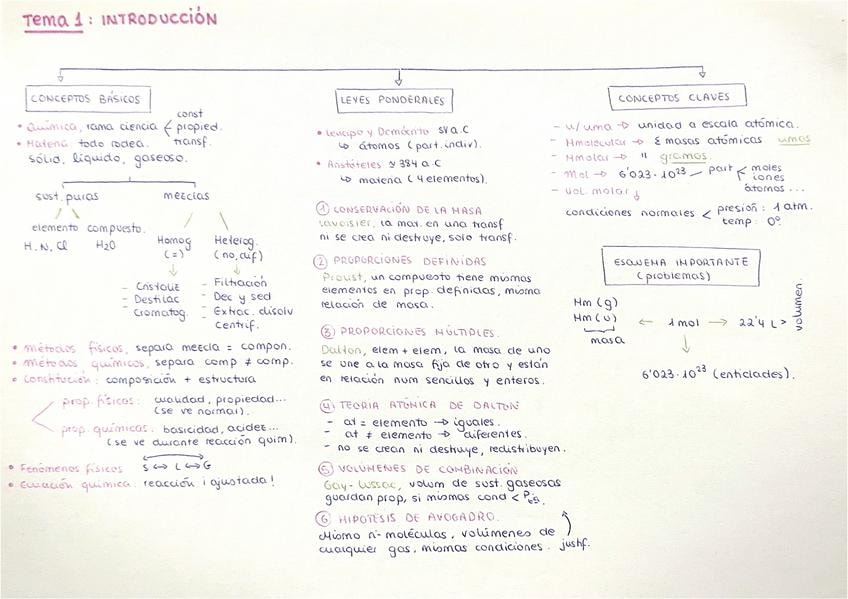 Tema 1: INTRODUCCIÓN
CONCEPTOS BÁSICOS
• Química, rama ciencia < const
propied.
transf.
• Materia. todo rodea.
sólido, líquido, gaseoso.
sust. puras mezclas
elemento compuesto. Homog Heterog.
H, N, Cl H2O (=) (no, dif)
- Cristaliz
- Destilac
- Cromatog.
- Filtración
- Dec y sed
- Extrac. disolv
Centrif.
• Métodos físicos, separa mezcla = compon.
• Métodos químicos, separa comp ≠ comp.
• Constitución: composición + estructura
prop. físicas: cualidad, propiedad...
(se ve normal).
prop. químicas: basicidad, acidez...
(se ve durante reacción quím).
• Fenómenos físicos S ↔ L ↔ G
• Ecuación química: reacción ¡ajustada!
LEYES PONDERALES
• Leucipo y Demócrito SV a.C
↳ átomos (part. indiv).
• Aristóteles ≈ 384 a.C
↳ materia (4 elementos).
① CONSERVACIÓN DE LA MASA
Lavoisier, la mat. en una transf
ni se crea ni destruye, solo transf.
② PROPORCIONES DEFINIDAS
Proust, un compuesto tiene mismos
elementos en prop. definidas, misma
relación de masa.
③ PROPORCIONES MÚLTIPLES.
Dalton, elem + elem, la masa de uno
se une a la masa fija de otro y están
en relación num sencillos y enteros.
④ TEORIA ATÓMICA DE DALTON
- at = elemento → iguales.
- at ≠ elemento → diferentes.
- no se crean ni destruye, redistribuyen.
⑤ VOLUMENES DE COMBINACIÓN
Gay-Lussac, volum de sust. gaseosas
guardan prop, si mismas cond <
⑥ HIPOTESIS DE AVOGADRO.
Mismo nº moléculas, volúmenes de
cualquier gas, mismas condiciones. justf.
CONCEPTOS CLAVES
- u/uma → unidad a escala atómica.
- Mmolecular → Σ masas atómicas umas
- Mmolar → " gramos.
- Mol → 6'023·10²³ – part < moles
iones
átomos...
- Vol. molar ↓
condiciones normales < presión: 1 atm.
temp: 0º
ESQUEMA IMPORTANTE
(problemas)
Mm (g)
Mm (u) ← 1mol → 22'4 L > volumen.
masa
6'023·10²³ (entidades).